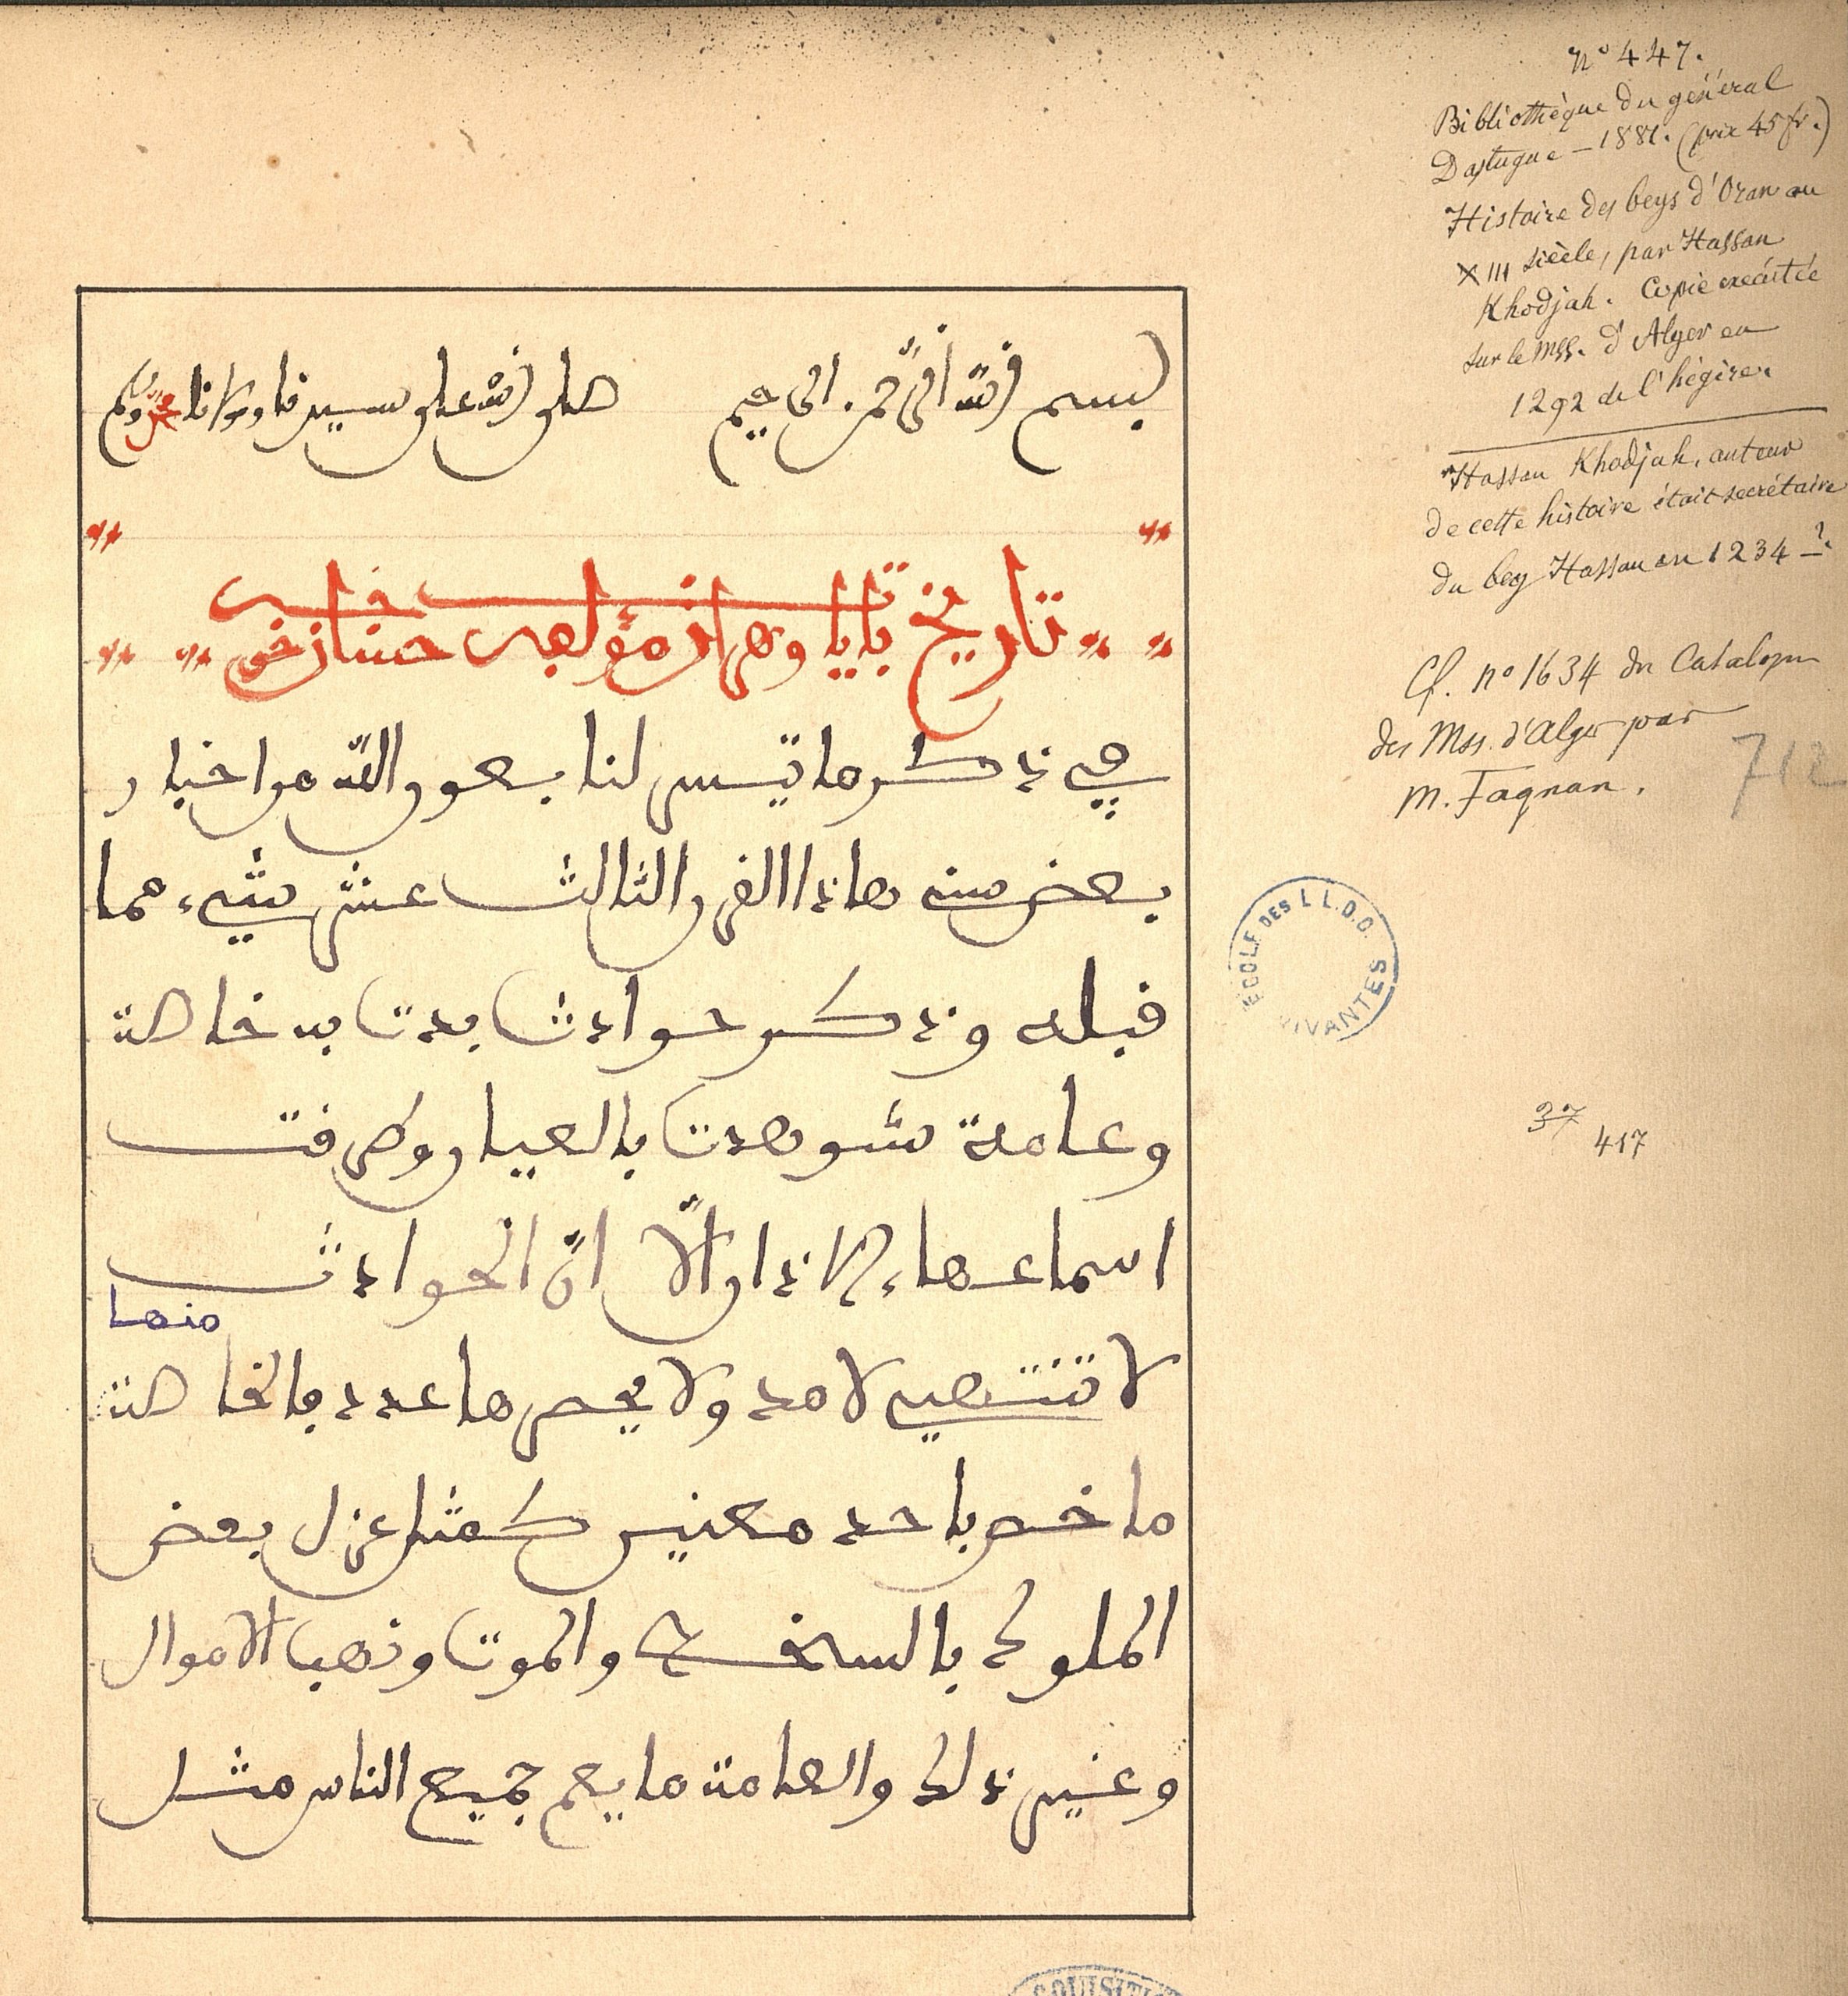 بسم الله الرحمن الرحيم صلى الله على سيدنا ومولانا محمد وسلم
تاريخ بايات وهران مؤلفه حسان خوجه
في ذكر ما تيسر لنا بعون الله من اخبار
بعض سنه هاذا القرن الثالث عشر شيء مما
قبله وذكر حوادث بدت به خاصة
وعامة شوهدت بالعيان وطرقت
اسماعها الاذان الا ان الحوادث
لا تنتهي لامد ولا يحصرها عدد فالخاصة
منها
ما خص باحد معنيين كمثل عزل بعض
الملوك بالسخط والموت وذهب الاموال
وغير ذلك والعامة ما يعم جميع الناس مثل
n° 447.
Bibliothèque du général
Dastugue – 1881. (prix 45 fr.)
Histoire des beys d'Oran au
XIII siècle, par Hassan
Khodjah. Copie exécutée
sur le mss. d'Alger en
1292 de l'hégire.
Hassan Khodjah, auteur
de cette histoire était secrétaire
du bey Hassan en 1234 – ?
Cf. n° 1634 du Catalogue
des Mss. d'Alger par
M. Fagnan.
712
ECOLE DES LL.O.O. VIVANTES
37
417